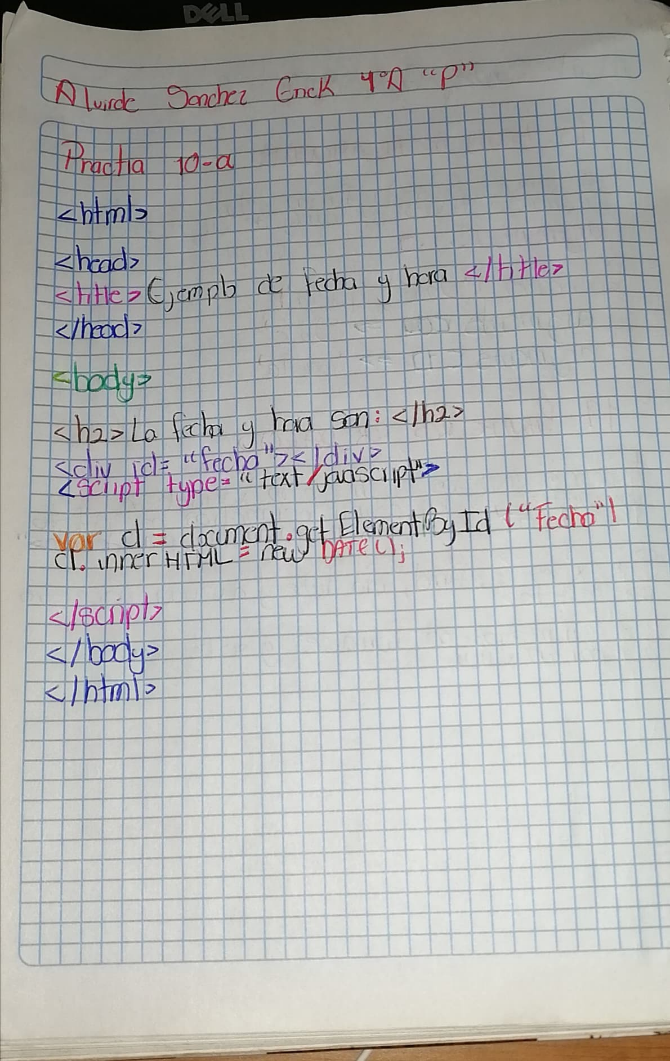 DELL
Aluirde Sanchez Erick 4°A "P"
Practia 10-a
<html>
<head>
<title> Ejemplo de fecha y hora </title>
</head>
<body>
<h2> La fecha y hora son: </h2>
<div id= "fecha"></div>
<script type= "text/javascript">
var d = document.getElementById ("Fecha")
d. inner HTML = new DATE();
</script>
</body>
</html>